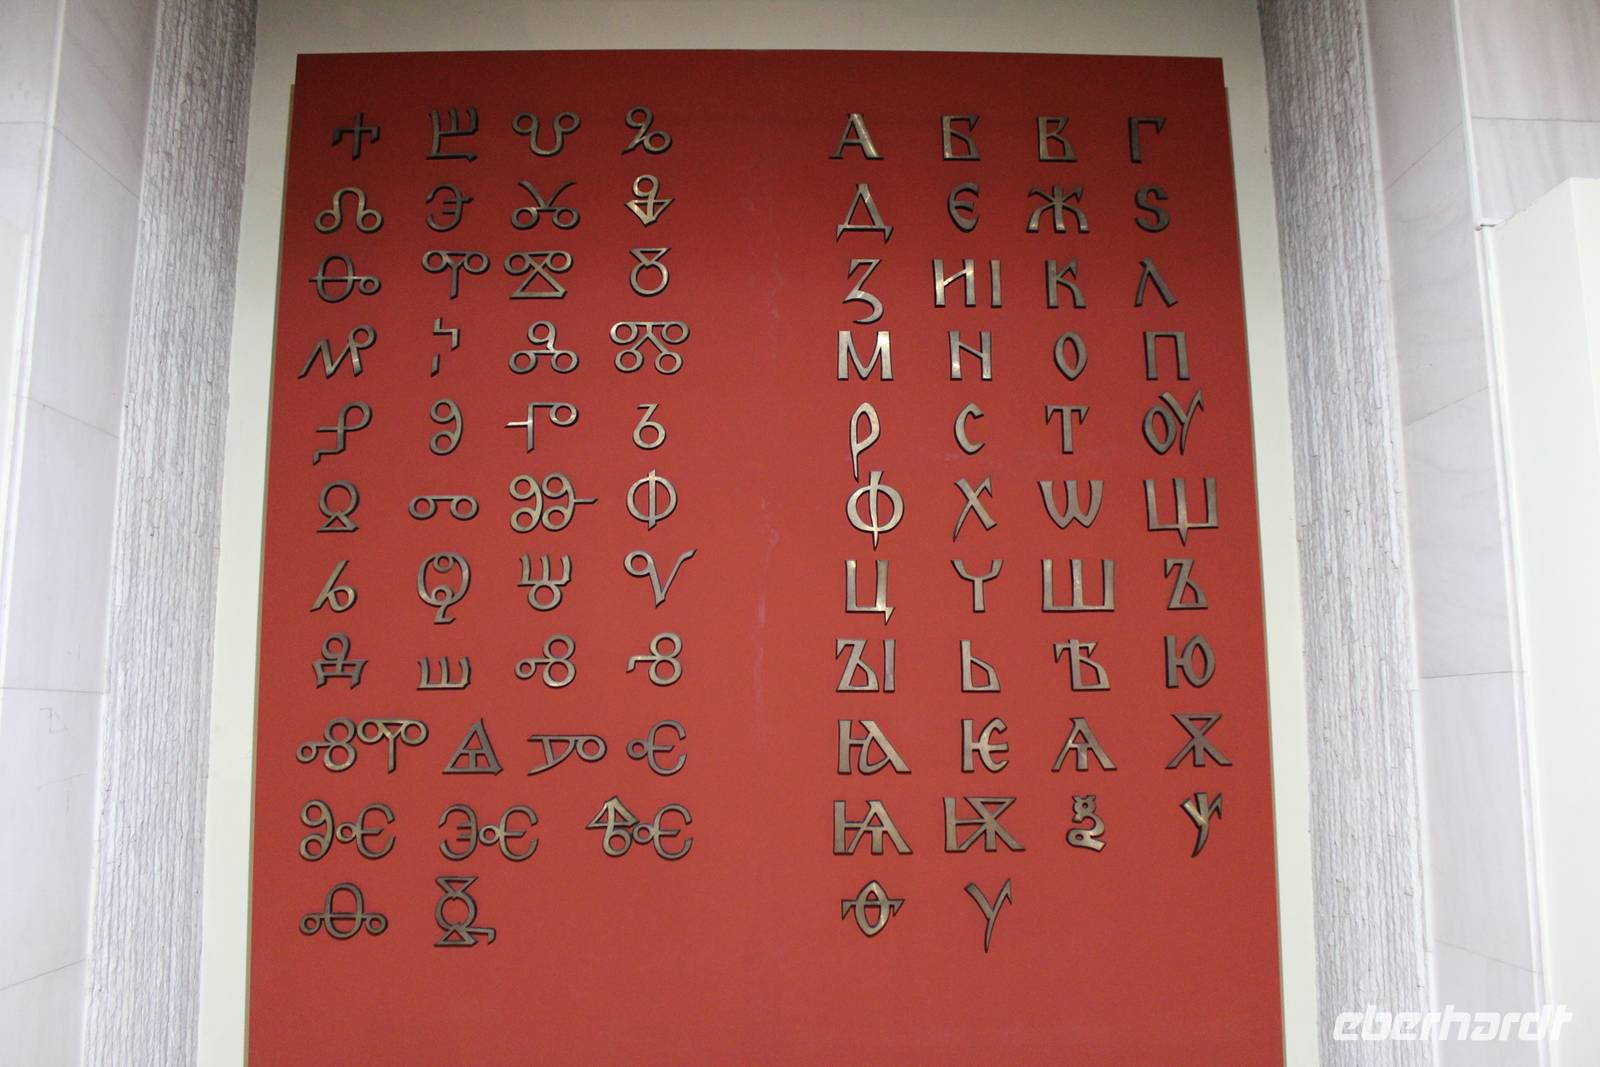 Ⰰ Ⰱ Ⰲ Ⰳ
Ⰴ Ⰵ Ⰶ Ⰷ
Ⰸ Ⰺ Ⰹ Ⰻ
Ⰼ Ⰽ Ⰾ Ⰿ
Ⱀ Ⱁ Ⱂ Ⱃ
Ⱄ Ⱅ Ⱆ Ⱇ
Ⱈ Ⱉ Ⱋ Ⱌ
Ⱍ Ⱎ Ⱏ Ⱐ
ⰟⰊ Ⱑ Ⱓ Ⱕ
Ⱘ Ⱔ Ⱙ
Ⱚ Ⱛ
А Б В Г
Д Є Ж Ѕ
З И І К Л
М Н О П
Р С Т ОУ
Ф Х Ѡ Щ
Ц Ч Ш Ъ
ЪІ Ь Ѣ Ю
Ꙗ Ѥ Ѧ Ѫ
Ѩ Ѭ Ѯ Ѱ
Ѳ Ѵ
eberhardt